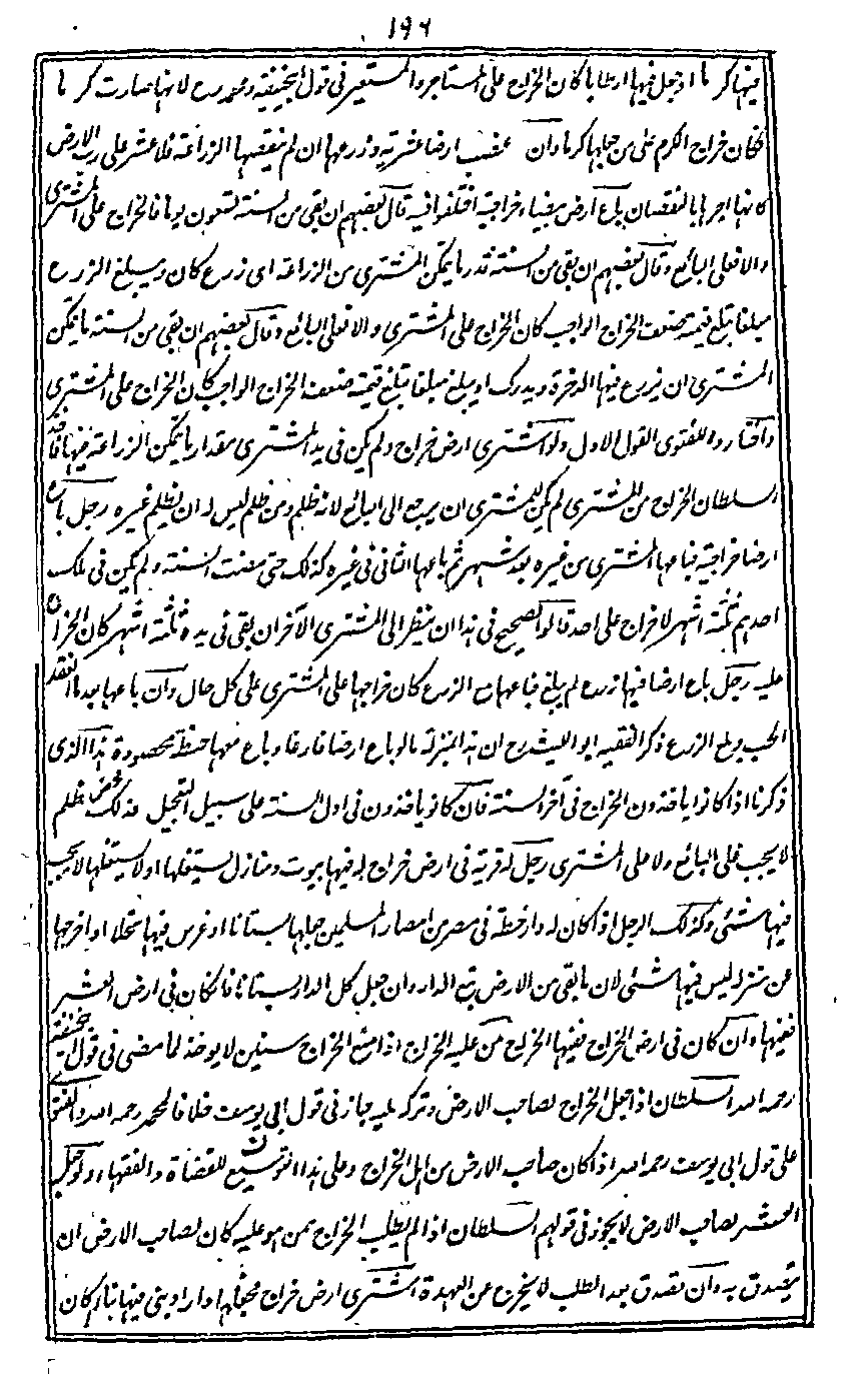 ١٩٦
فيها كرما او جعل فيها ارطابا كان الخراج على المستاجر والمستعير في قول ابيحنيفة ومحمد رح لانها صارت كرما
فكان خراج الكرم على من جعلها كرما وان غصب ارضا عشرية وزرعها ان لم ينقصها الزراعة فلا عشر على رب الارض
كانه اجرها بالنقصان باع ارض بيضاء خراجية اختلفوا فيه قال بعضهم ان بقي من السنة تسعون يوما فالخراج على المشتري
والا فعلى البائع وقال بعضهم ان بقي من السنة قدر ما يمكن المشتري من الزراعة اي زرع كان ويبلغ الزرع
مبلغا تبلغ قيمته ضعف الخراج الواجب كان الخراج على المشتري والا فعلى البائع وقال بعضهم ان بقي من السنة ما يمكن
المشتري ان يزرع فيها الدخرة ويدرك او يبلغ مبلغا تبلغ قيمته ضعف الخراج الواجب كان الخراج على المشتري
واختاروا للفتوى القول الاول ولو اشترى ارض خراج ولم يكن في يد المشتري مقدار ما يمكن الزراعة فيها فاخذ
السلطان الخراج من المشتري لم يكن للمشتري ان يرجع الى البائع لانه ظلم ومن ظلم ليس له ان يظلم غيره رجل باع
ارضا خراجية فباعها المشتري من غيره بعد شهر ثم باعها الثاني من غيره كذلك حتى مضت السنة ولم يكن في ملك
احدهم ثلثة اشهر لا خراج على احد قالوا الصحيح في هذا ان ينظر الى المشتري الآخر ان بقي في يده ثلثة اشهر كان الخراج
عليه رجل باع ارضا فيها زرع لم يبلغ فباعها مع الزرع كان خراجها على المشتري على كل حال وان باعها بعد ما انعقد
الحب وبلغ الزرع ذكر الفقيه ابو الليث رح ان هذا بمنزلة ما لو باع ارضا فارغة وباع معها حنطة محصودة هذا الذي
ذكرنا اذا كانوا ياخذون الخراج في آخر السنة فان كانوا ياخذون في اول السنة على سبيل التعجيل فذلك محض ظلم
لا يجب على البائع ولا على المشتري رجل له قرية في ارض خراج له فيها بيوت ومنازل يستغلها او لا يستغلها لا يجب
فيها شئ وكذلك الرجل اذا كان له دار خطة في مصر من امصار المسلمين جعلها بستانا او غرس فيها نخلا واخرجها
عن منزله ليس فيها شئ لان ما بقي من الارض تبع للدار وان جعل كل الدار بستانا فان كان في ارض العشر
ففيها وان كان في ارض الخراج ففيها الخراج من عليه الخراج اذا منع الخراج سنين لا يوخذ لما مضى في قول ابيحنيفة
رحمه الله السلطان اذا جعل الخراج لصاحب الارض وتركه عليه جاز في قول ابي يوسف خلافا لمحمد رحمه الله والفتوى
على قول ابي يوسف رحمه الله اذا كان صاحب الارض من اهل الخراج وعلى هذا التوسيع للقضاة والفقهاء ولو جعل
العشر لصاحب الارض لا يجوز في قولهم السلطان اذا لم يطلب الخراج ممن هو عليه كان لصاحب الارض ان
يتصدق به وان تصدق بعد الطلب لا يخرج عن العهدة اشترى ارض خراج فجعلها دارا وبنى فيها بناء كان